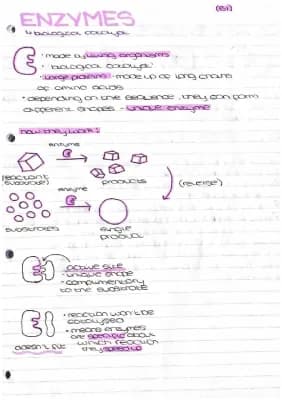 ENZYMES
↳ biological catalyst
• made by living organisms
• biological catalyst
• large proteins - made up of long chains
of amino acids
• depending on the sequence, they can form
different shapes - unique enzyme
how they work:
enzyme
reactant
(substrate)
products
(reverse)
enzyme
substrates
single
product
active site
• unique shape
• complimentary
to the substrate
• reaction won't be
catalysed
• means enzymes
are specific about
which reaction
they speed up
doesn't fit